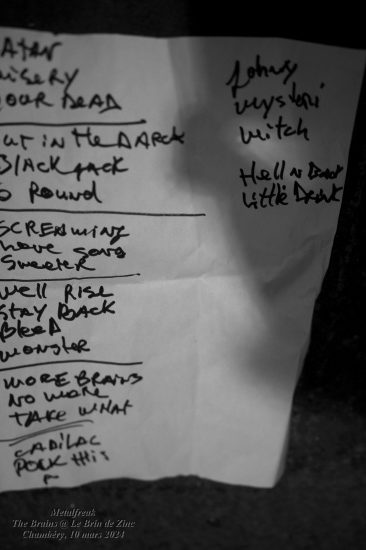 ATAN
MISERY
YOUR DEAD
OUT IN THE DARCK
BLACKJACK
6 POUND
SCREAMING
have song
Sweeter
WELL RISE
STAY BACK
BLEED
MONSTER
MORE BRAINS
NO MORE
TAKE WHAT
CADILAC
FUCK THIS
Johny
mysteri
witch
Hell n Back
Little Drink
Metalfreak
The Brains @ Le Brin de Zinc
Chambéry, 10 mars 2024